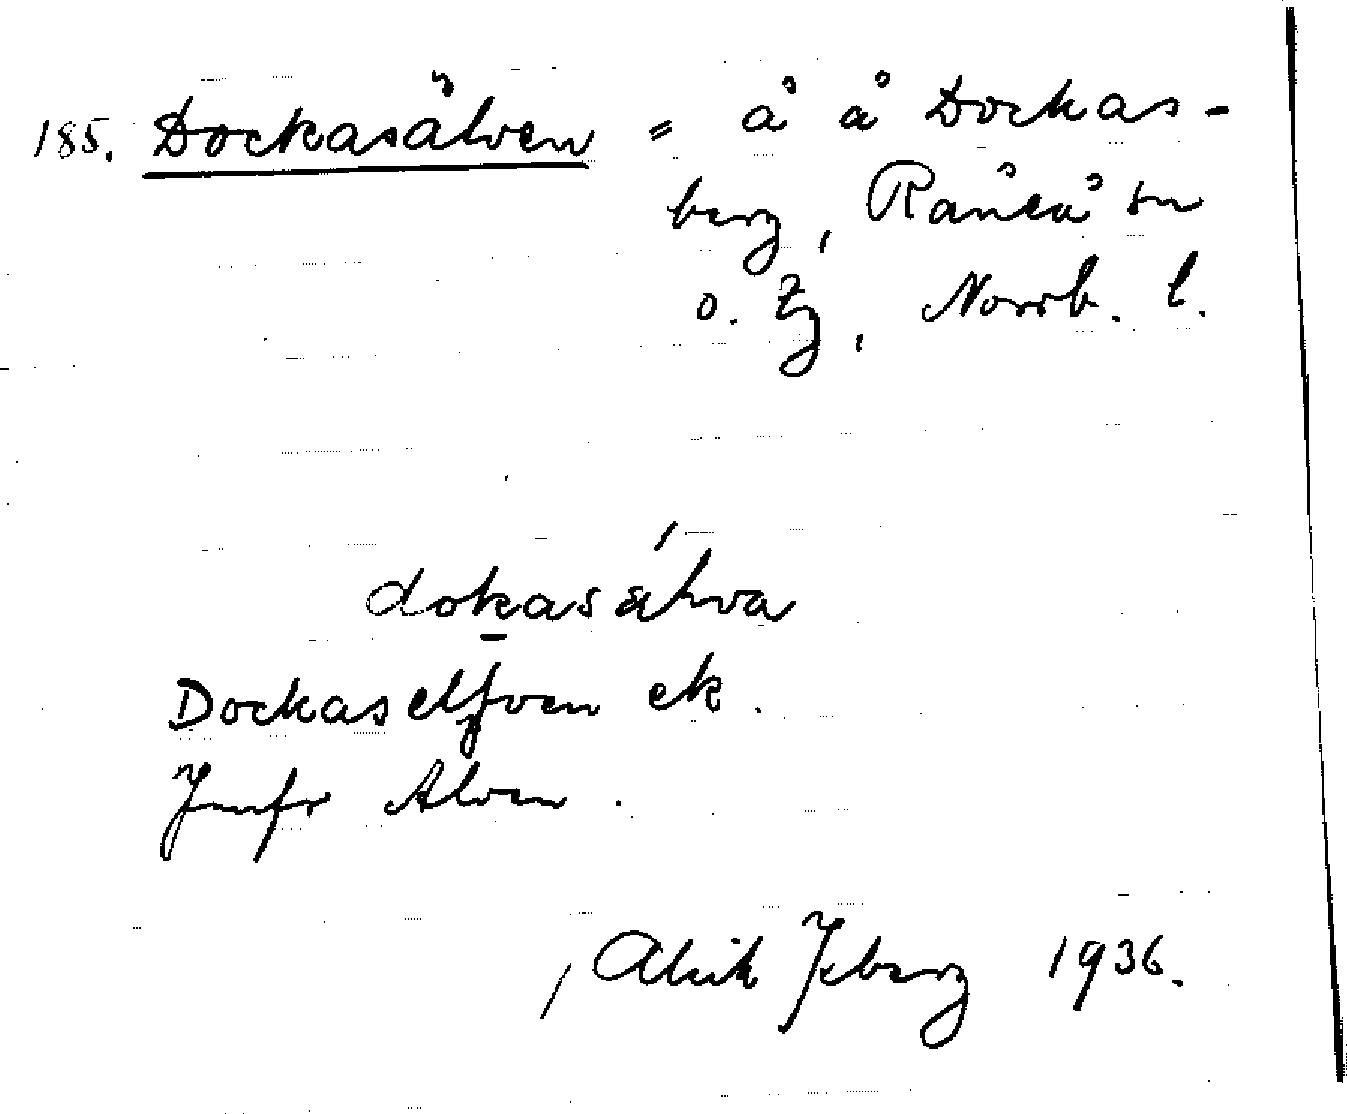 185. Dockasälven = å å Dockas-
berg, Råneå sn
o. tg, Norrb. l.
dokasälva
Dockaselfven ek.
Jmfr Älven.
Alrik Isberg 1936.